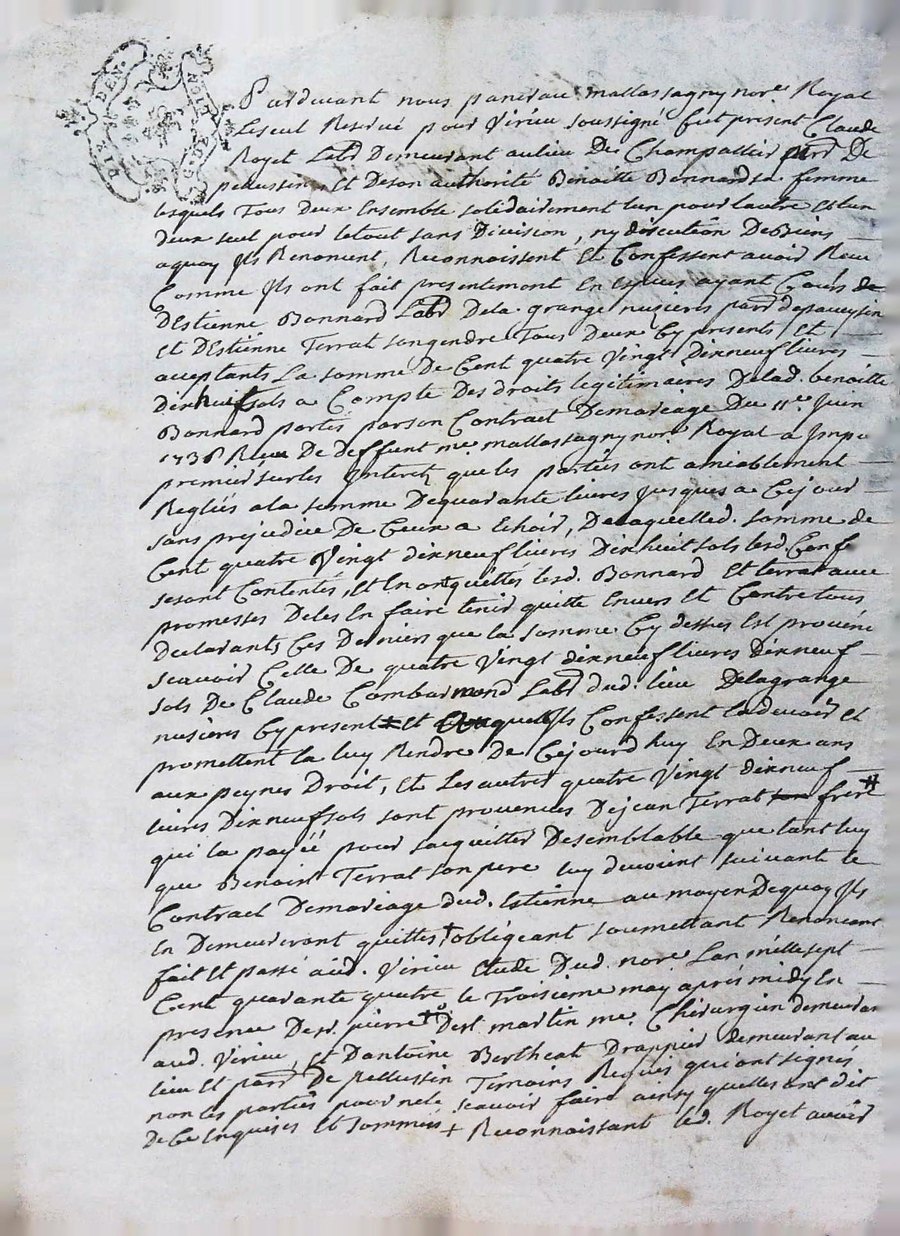 DIX DEN.
Pardevant nous pancrau mallassagny nore. Royal
Leseul Reservé pour Virieu soussigné fut present Claude
Royet Labr Demeurant aulieu De Champallier parr De
pellussin, Et Deson authorité Benoitte Bonnard sa femme
lesquels Tous deux Ensemble solidairement lun pour lautre et lun
deux seul pour letout sans Division, ny discution DeBiens
aquoy Ils Renoncent, Reconnoissent Et Confessent avoir Receu
Comme Ils ont fait presentement En Especes ayant Cours de
DEstienne Bonnard Labr Dela grange nusieres parr
Et DEstienne Terrat songendre Tous Deux Cy presents Et
acceptants La somme De Cent quatre Vingt Dixneuf livres
Dixneuf sols a Compte Des droits legitimaires Delad. benoitte
Bonnard portés parson Contract Demariage Du 11e. Juin
Receu De deffunt me. mallassagny nore. Royal a Impu
premier surles Interetz que les parties ont amiablement
Reglés ala somme Dequarante livres jusques a Cejour
sans prejudice De Ceux a Echoir, De laquelled. somme de
Cent quatre Vingt dixneuf livres Dixhuit sols lesd. Conf
sesont Contentés, Et En ont quittés lesd. Bonnard Et terrat avec
promesses Deles En faire tenir quitte Envers Et Contre tous
Declarants Ces Derniers que la somme Cy dessus Est provenue
scavoir Celle De quatre Vingt dixneuf livres Dixneuf
sols De Claude Combarmond Labr dud. lieu Delagrange
nusieres Cy present Et quels Ils Confessent ladevoir Et
promettent la luy Rendre De Cejourdhuy En Deux ans
aux peynes Droit, Et Les autres quatre Vingt dixneuf
livres Dixneuf sols sont provenues Dejean Terrat son frere #
qui la payéé pour sacquitter Desemblable que tant luy
que Benoist Terrat son pere luy devoient suivant le
Contract Demariage dud. Estienne au moyen Dequoy Ils
En Demeureront quittes, + obligeant soumettant Renoncant
fait Et passé aud. Virieu Etude Dud. nore. Lan mille sept
Cent quarante quatre le Troisieme may aprés midy En
presence Desr. pierre Desl. martin me. Chirurgien demeurant
aud. Virieu, Et Dantoine Bertheat Drappier demeurant au
lieu Et parr De pellussin Temoins Requis qui ont signés
non les parties pour nele scavoir faire ainsy quelles ont dit
De Ce Enquises Et sommées + Reconnoissant led. Royet avoir